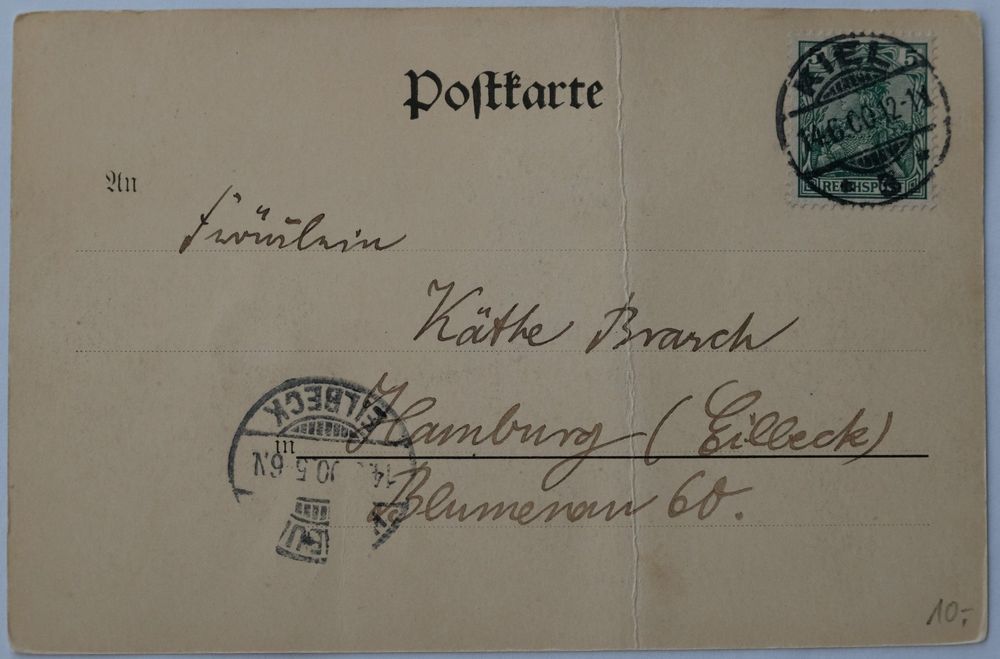 Postkarte
5
KIEL
14.6.00.12-1N
* 3 *
REICHSPOST
An
Fräulein
Käthe Brasch
EILBECK
Hamburg (Eilbeck)
in
14. 00.5-6N.
Blumenau 60.
10.-